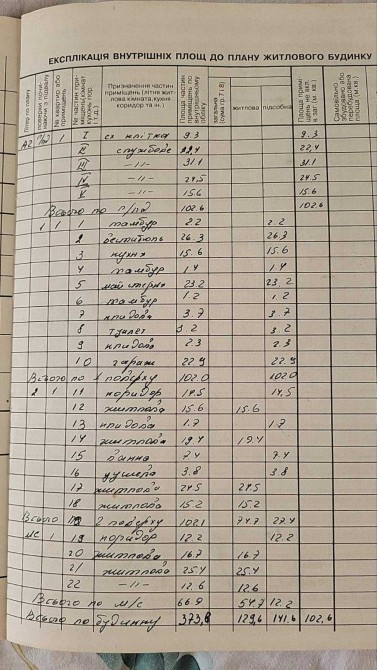 ЕКСПЛІКАЦІЯ ВНУТРІШНІХ ПЛОЩ ДО ПЛАНУ ЖИТЛОВОГО БУДИНКУ
Літер по плану
поверхи, почи- наючи з підвалу
№ квартир або приміщень
Призначення частин приміщень (літня жит- лова кімната, кухня коридор та ін.)
загальна (сума гр.7 і 8)
житлова
підсобна
I сх. клітка 9.3 9.3
II службове 22,4 22,4
III -"- 31.1 31.1
IV -"- 24,5 24.5
V -"- 15.6 15.6
Всього по п/пд 102.6 102.6
1 1 1 тамбур 2.2 2.2
2 вестибюль 26.3 26.3
3 кухня 15.6 15.6
4 тамбур 1.4 1.4
5 майстерня 23.2 23,2
6 тамбур 1.2 1.2
7 кладова 3.7 3.7
8 туалет 3.2 3.2
9 кладова 2.3 2.3
10 гараж 22.9 22.9
Всього по 1 поверху 102.0 102.0
2 1 11 коридор 14.5 14,5
12 житлова 15.6 15.6
13 кладова 1.7 1.7
14 житлова 19.4 19.4
15 ванна 7.4 7.4
16 3.8 3.8
17 житлова 24.5 24.5
18 житлова 15.2 15.2
Всього 2 поверху 102.1 74.7 27.4
м/с 1 19 коридор 12.2 12.2
20 житлова 16.7 16.7
21 житлова 25.4 25.4
22 -"- 12.6 12.6
Всього по м/с 66.9 54.7 12.2
Всього по будинку 373,6 129,4 141.6 102,6